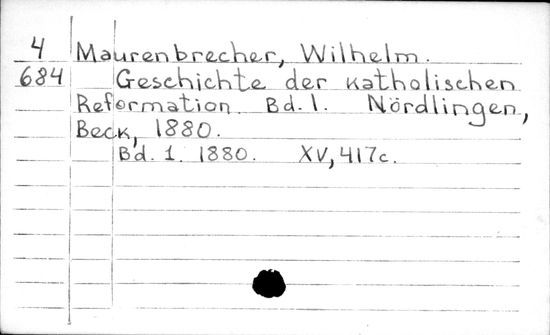 4 Maurenbrecher, Wilhelm.
684 Geschichte der katholischen
Reformation. Bd. 1. Nördlingen,
Beck, 1880.
Bd. 1. 1880. XV, 417c.